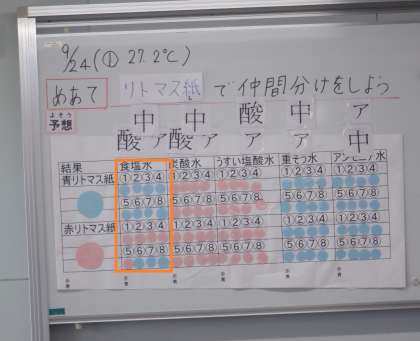 9/24(① 27.2℃)
めあて リトマス紙 で仲間分けをしよう
よそう
予想
中 中 酸 中 ア
酸 ア 酸 ア ア ア 中
結果 食塩水 炭酸水 うすい塩酸水 重そう水 アンモニア水
青リトマス紙 ①②③④ ①②③④ ①②③④ ①②③④ ①②③④
⑤⑥⑦⑧ ⑤⑥⑦⑧ ⑤⑥⑦⑧ ⑤⑥⑦⑧ ⑤⑥⑦⑧
赤リトマス紙 ①②③④ ①②③④ ①②③④ ①②③④ ①②③④
⑤⑥⑦⑧ ⑤⑥⑦⑧ ⑤⑥⑦⑧ ⑤⑥⑦⑧ ⑤⑥⑦⑧